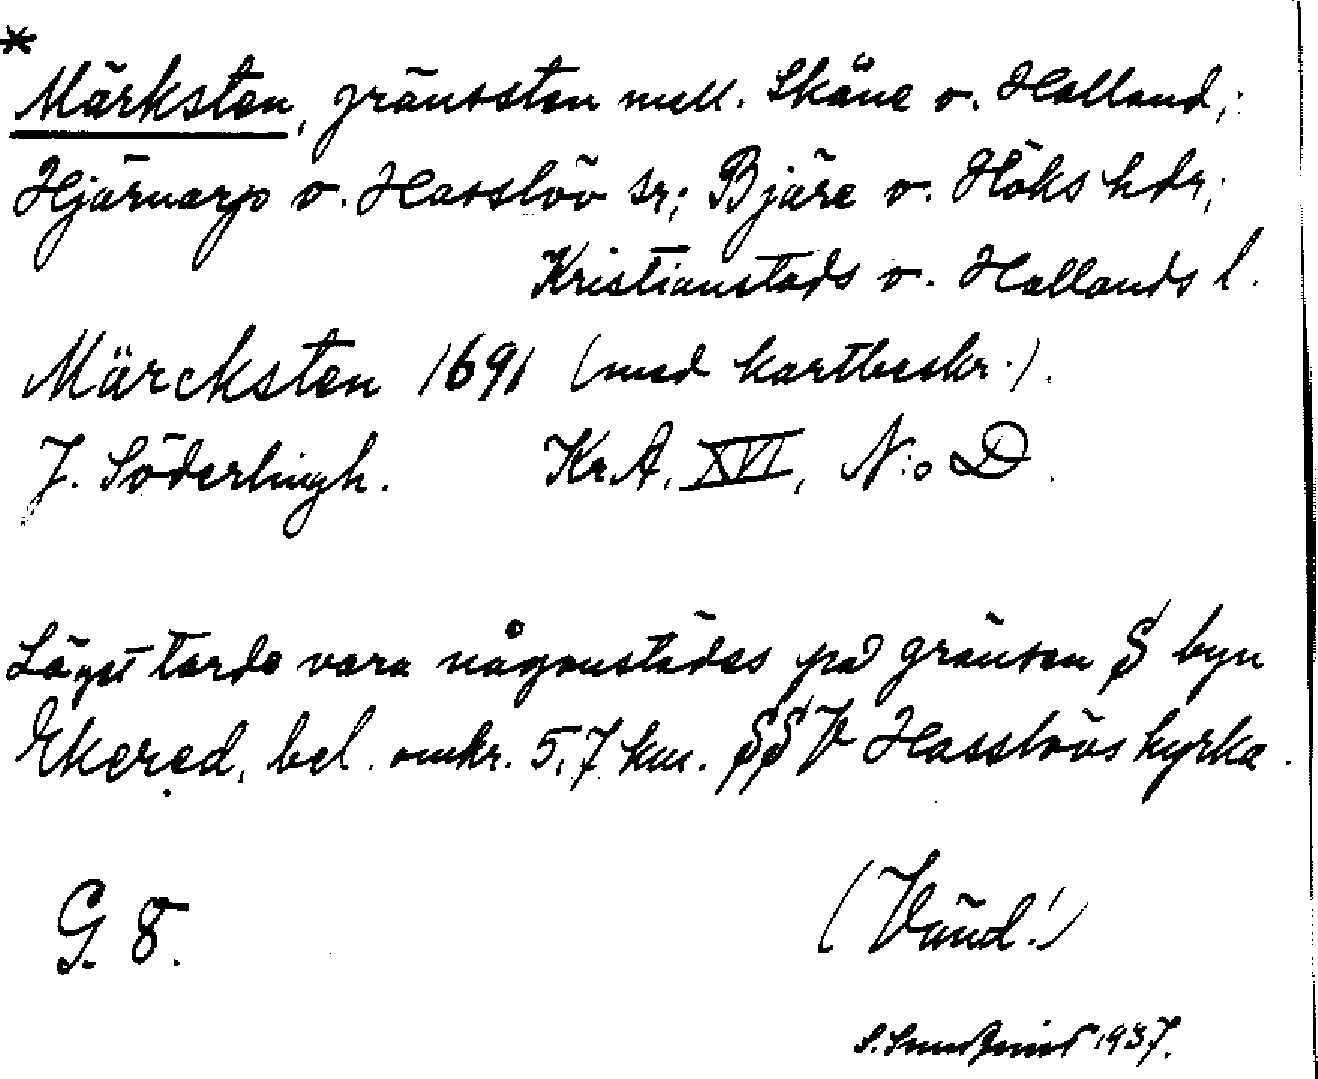 *
Märksten, gränssten mell. Skåne o. Halland;
Hjärnarp o. Hasslöv sr; Bjäre o. Höks hdr;
Kristianstads o. Hallands l.
Märcksten 1691 (med kartbeskr.).
J. Söderlingh. Kr.A. XVI, N:o D.
Läget torde vara någonstädes på gränsen S byn
Ekered, bel. omkr. 5,7 km. SSV Hasslövs kyrka.
G. 8.
(Vänd!)
1937.